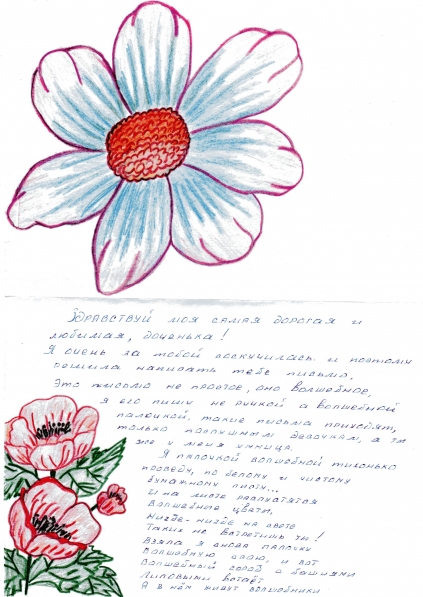 Здравствуй моя самая дорогая и
любимая, доченька!
Я очень за тобой соскучилась и поэтому
решила написать тебе письмо.
Это письмо не простое, оно волшебное,
я его пишу не ручкой а волшебной
палочкой, такие письма приходят,
только послушным девочкам, а ты
же у меня умница.
Я палочкой волшебной тихонько
проведу, по белому и чистому
бумажному листу...
И на листе распустятся
Волшебные цветы,
Нигде-нигде на свете
Таких не встретишь ты!
Взяла я снова палочку
Волшебную свою, и вот
Волшебный город с башнями
Лиловыми встаёт
А в нём живут волшебники